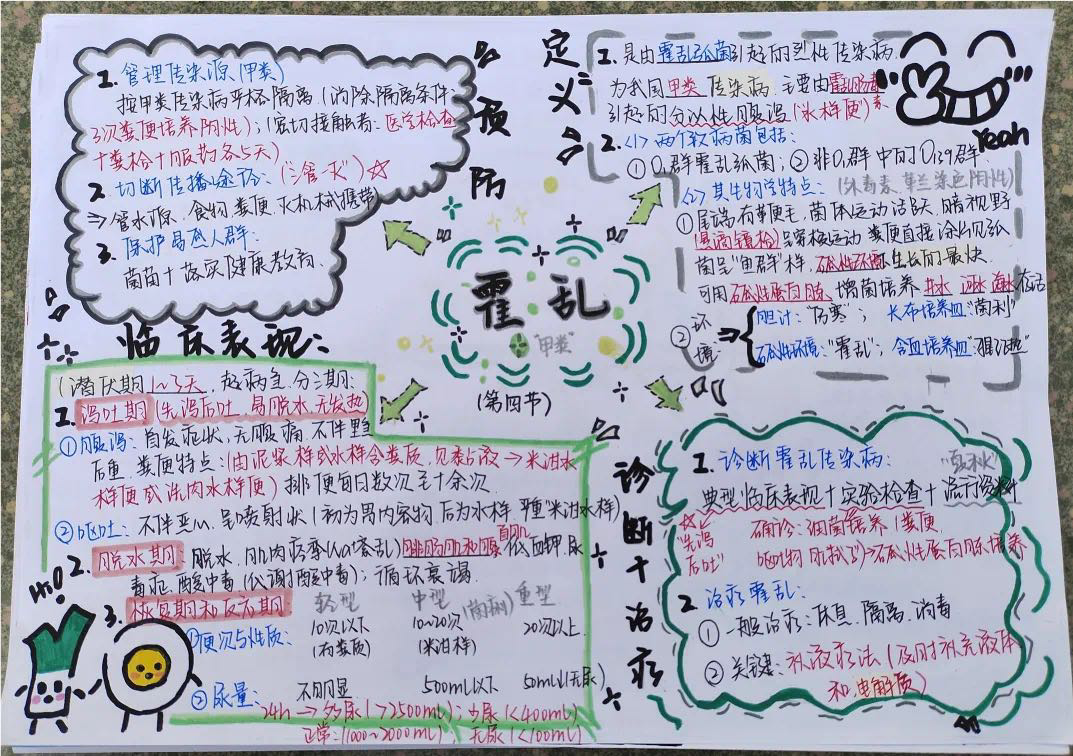 霍乱
"甲类"
(第四节)
定义:
1. 是由霍乱弧菌引起的烈性传染病.
为我国甲类传染病. 主要由霍乱肠毒素
引起的分泌性腹泻(水样便)
2. <1> 两个致病菌包括:
① O1群霍乱弧菌; ② 非O1群中的O139群.
<2> 其生物学特点: (外毒素. 革兰染色阴性)
① 尾端有鞭毛, 菌体运动活跃. 暗视野
(悬滴镜检) 呈穿梭运动 粪便直接涂片见弧
菌呈"鱼群"样, 碱性环境生长的最快.
可用碱性蛋白胨增菌培养 井水 河水 海水存活
② 环境 ⇒ { 胆汁: "伤寒"; 长布培养皿"菌利"
碱性环境: "霍乱"; 含血培养皿
预防
1. 管理传染源 (甲类)
按甲类传染病严格隔离. (消除隔离条件:
3次粪便培养阴性); (密切接触者: 医学检查
+粪检+服药各5天)
2 切断传播途径: (三管一灭) ☆
⇒ 管水源. 食物. 粪便. 灭机械携带
3. 保护易感人群:
菌苗+落实健康教育.
临床表现:
(潜伏期1~3天. 起病急. 分三期:
1. 泻吐期 (先泻后吐. 易脱水. 无发热)
① 腹泻: 首发症状, 无腹痛. 不伴里急
后重. 粪便特点: (由泥浆样或水样含粪质, 见黏液→米泔水
样便或洗肉水样便) 排便每日数次至十余次.
② 呕吐: 不伴恶心. 呈喷射状 (初为胃内容物, 后为水样. 严重"米泔水样)
2. 脱水期: 脱水. 肌肉痉挛(Na+紊乱) 腓肠肌和腹直肌 低血钾. 尿
毒症. 酸中毒 (代谢性酸中毒); 循环衰竭.
3. 恢复期和反应期:
轻型 中型 (菌痢) 重型
① 便次与性质: 10次以下 10~20次 20次以上
(有粪质) (米泔样)
② 尿量: 不明显 500mL以下 50mL(无尿)
24h → 多尿 (>2500mL); 少尿 (<400mL)
正常: (1000~2000mL); 无尿 (<100mL)
Hi!
Yeah
诊断+治疗
1. 诊断霍乱传染病: "夏秋"
典型临床表现+实验检查+流行资料
☆"先泻后吐" 确诊: 细菌培养 (粪便
呕吐物 肛拭子)→碱性蛋白胨培养
2 治疗霍乱:
① 一般治疗: 休息. 隔离. 消毒
② 关键: 补液疗法 (及时补充液体
和电解质)